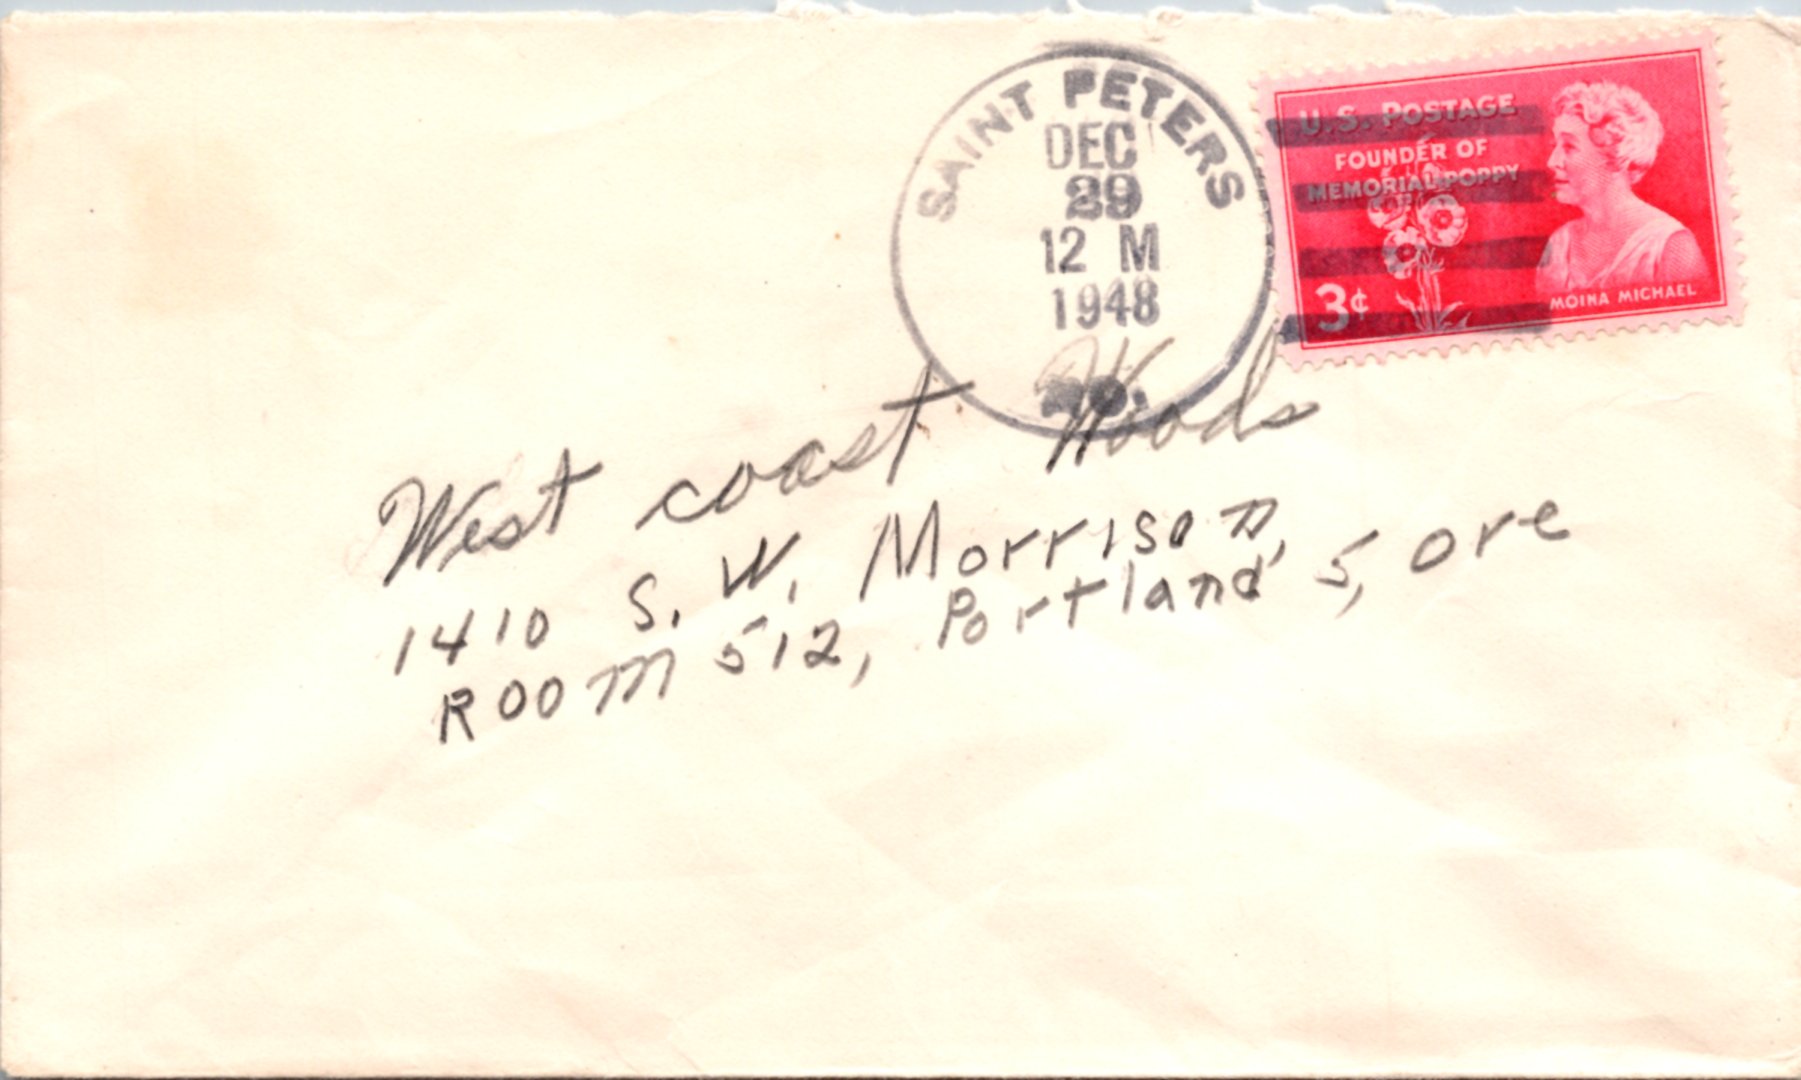 SAINT PETERS
DEC
29
12 M
1948
MO.
U.S. POSTAGE
FOUNDER OF
MEMORIAL POPPY
3¢
MOINA MICHAEL
West coast Woods
1410 S. W. Morrison,
ROOM 512, Portland 5, Ore